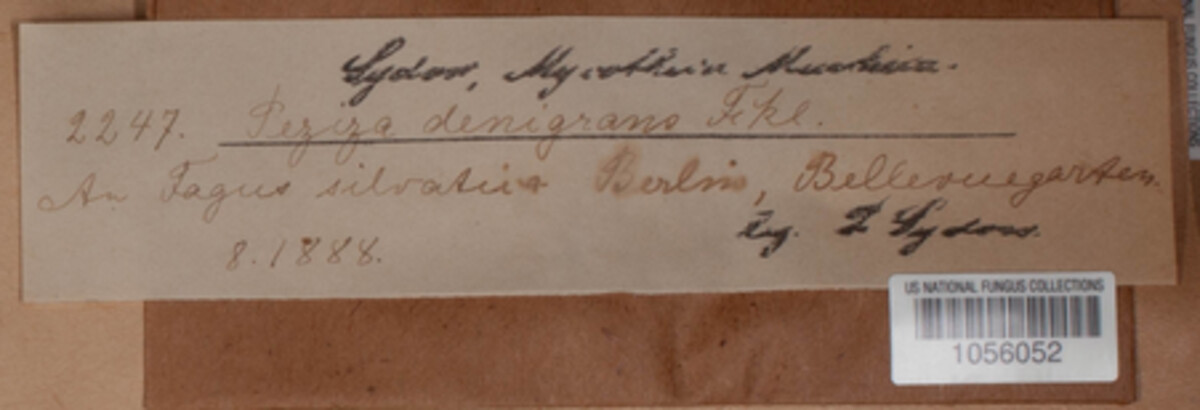 Sydow, Mycotheca Marchica.
2247. Peziza denigrans Fckl.
An Fagus silvatica Berlin, Bellevuegarten.
8.1888.
Leg. P Sydow.
US NATIONAL FUNGUS COLLECTIONS
1056052